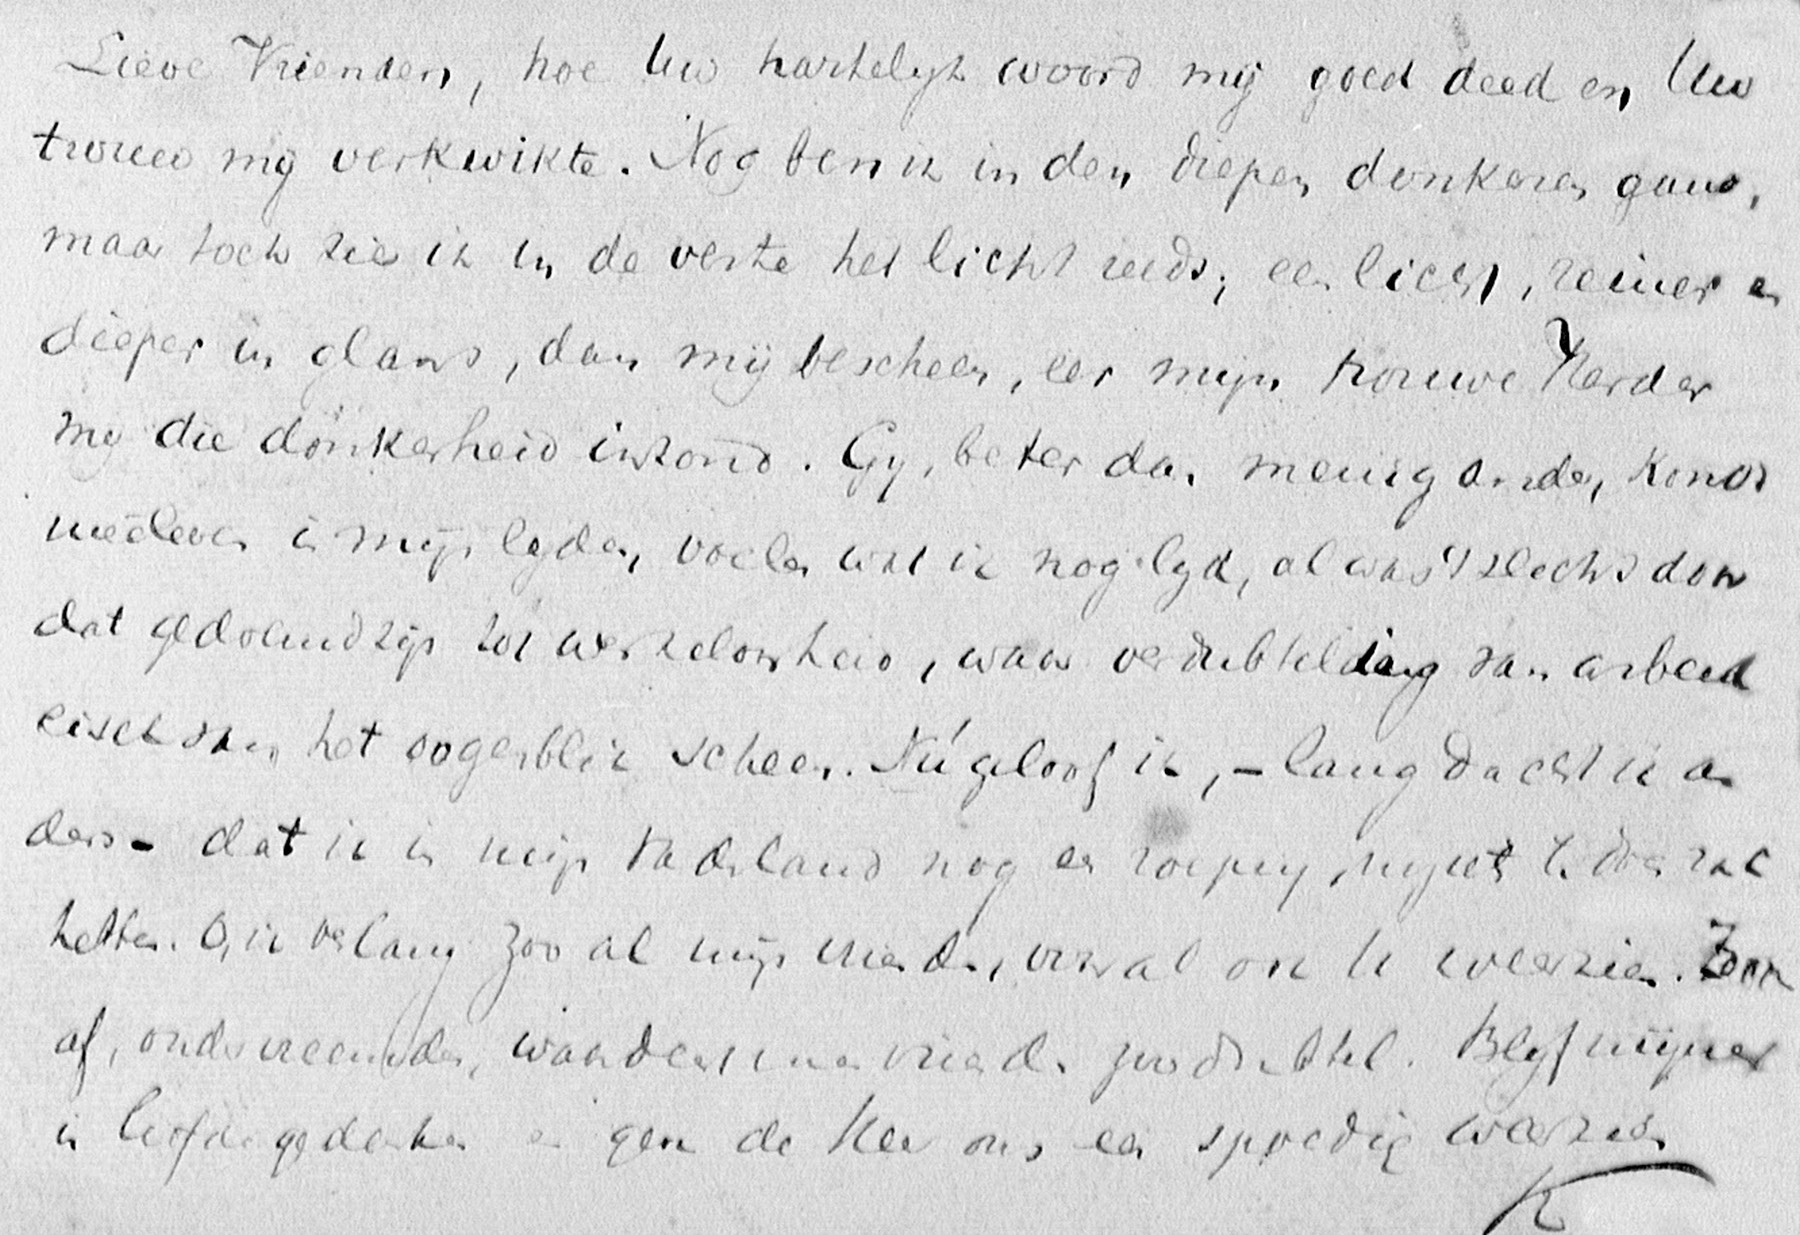 Lieve Vrienden, hoe Uw hartelyk woord mij goed deed en Uw
trouw mij verkwikte. Nog ben ik in den diepen donkeren gang,
maar toch zie ik in de verte het licht reeds; een licht, reiner en
dieper in glans, dan mij bescheen, eer mijn trouwe Herder
my die donkerheid inzond. Gy, beter dan menig ander, kondt
meêleven in mijn lyden, voelen wat ik nog lyd, al was 't slechts door
dat gedoemd zijn tot werkeloosheid, waar verdubbelding van arbeid
eisch van het oogenblik scheen. Nú geloof ik, – lang dacht ik an
ders – dat ik in mijn Vaderland nog en roeping, nog iets te doen zal
hebben. O, ik verlang zoo al mijn vrienden, vooral ook U weer zien. Zoo
af, onder vreemden, waardeert men vrienden zoo dubbel. Blyf mijner
in liefde gedenken en geve de Heer ons een spoedig weerzien
K